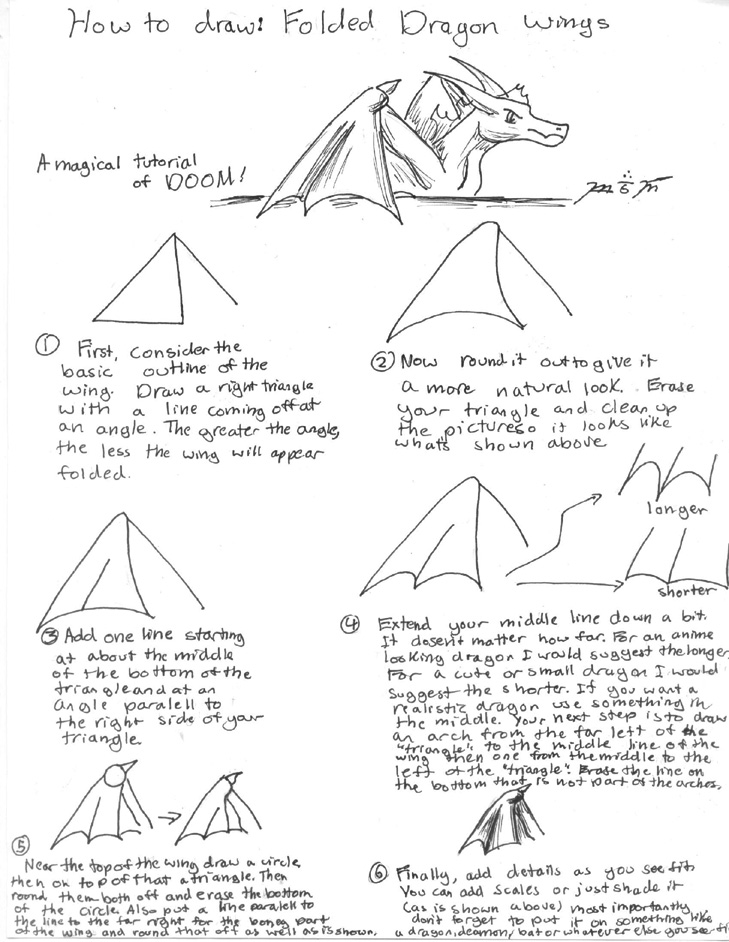 How to draw: Folded Dragon wings
A magical tutorial
of DOOM!
① First, consider the
basic outline of the
wing. Draw a right triangle
with a line coming off at
an angle. The greater the angle,
the less the wing will appear
folded.
② Now round it out to give it
a more natural look. Erase
your triangle and clean up
the picture so it looks like
whats shown above
longer
shorter
③ Add one line starting
at about the middle
of the bottom of the
triangle and at an
angle paralell to
the right side of your
triangle.
④ Extend your middle line down a bit.
It dosent matter how far. For an anime
looking dragon I would suggest the longer
For a cute or small dragon I would
suggest the shorter. If you want a
realistic dragon use something in
the middle. Your next step is to draw
an arch from the far left of the
"triangle" to the middle line of the
wing then one from the middle to the
left of the "triangle". Erase the line on
the bottom that is not part of the arches.
⑤
Near the top of the wing draw a circle
then on top of that a triangle. Then
round them both off and erase the bottom
of the circle. Also put a line paralell to
the line to the far right for the boney part
of the wing and round that off as well as is shown.
⑥ Finally, add details as you see fit.
You can add scales or just shade it
(as is shown above) most importantly
don't forget to put it on something like
a dragon, deamon, bat or whatever else you see fit